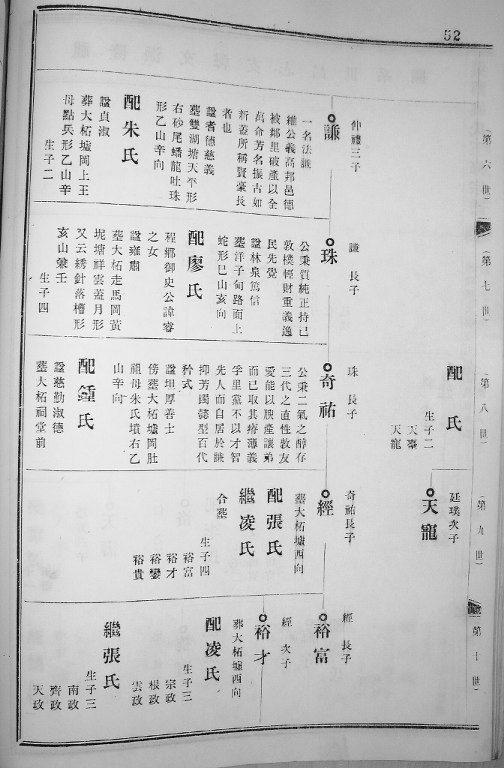 52
第六世
第七世
第八世
第九世
第十世
配氏
生子二
天棗
天寵
廷璞次子
天寵
仲禮三子
謙
一名法謙
維公義高邦邑德
被鄰里破產以全
萬命芳名振古如
新蓋所稱賢豪長
者也
諡者德慈義
墓雙湖塘天平形
右砂尾蟠龍吐珠
形乙山辛向
配朱氏
諡貞淑
葬大柘墟岡上王
母點兵形乙山辛
生子二
謙長子
珠
公秉質純正持己
敦樸輕財重義逸
民先覺
諡林泉篤信
墓洋子甸路而上
蛇形巳山亥向
配廖氏
程鄉御史公諱睿
之女
諡雍肅
墓大柘走馬岡黃
坭塘祥雲蓋月形
又云綉針落槽形
亥山兼壬
生子四
珠長子
奇祐
公秉二氣之醇存
三代之直性敦友
愛能以腴產讓弟
而已取其瘠薄義
學里黨不以才智
先人而自居於謙
抑芳躅懿型百代
矜式
諡坦厚善士
傍墓大柘墟岡肚
祖母朱氏墳右乙
山辛向
配鍾氏
諡慈勤淑德
墓大柘祠堂前
奇祐長子
經
墓大柘墟西向
配張氏
繼凌氏
合墓
生子四
裕富
裕才
裕鑾
裕貴
經長子
裕富
經次子
裕才
葬大柘墟西向
配凌氏
生子三
宗政
根政
雲政
繼張氏
生子三
南政
齊政
天政